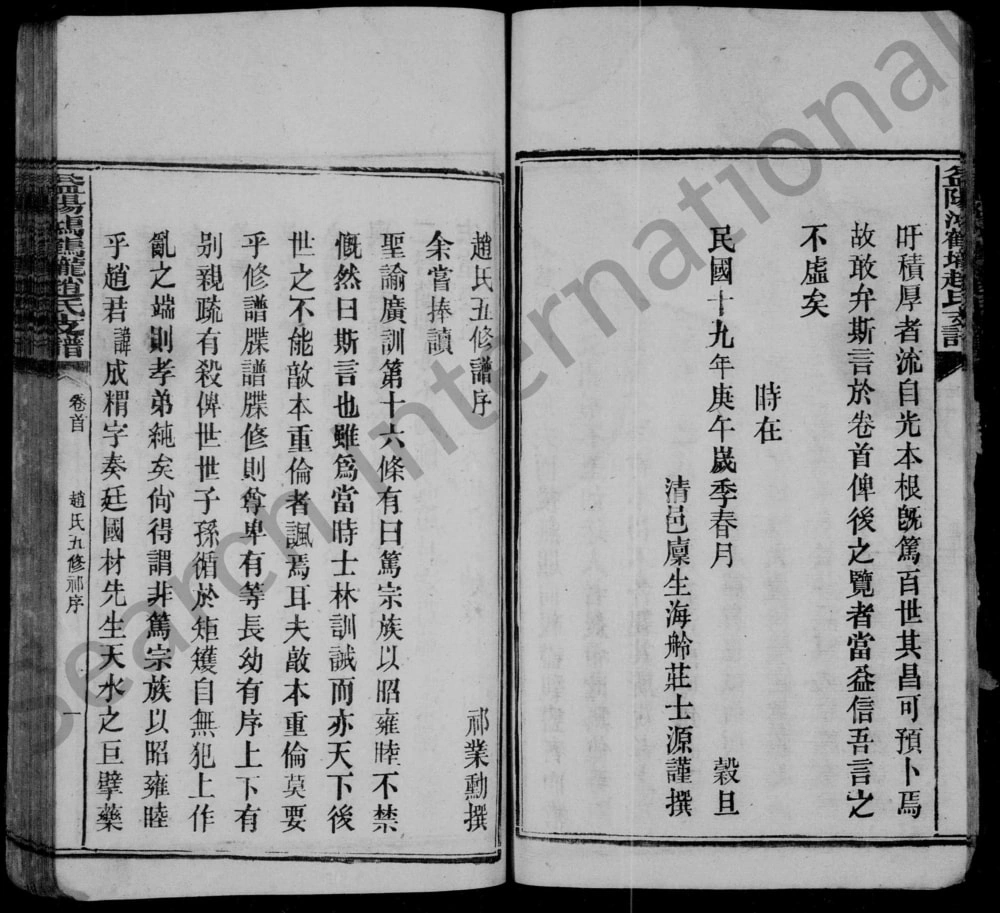 吁積厚者流自光本根旣篤百世其昌可預卜焉
故敢弁斯言於卷首俾後之覽者當益信吾言之
不虛矣
時在
民國十九年庚午歲季春月 穀旦
清邑廩生海舲莊士源謹撰
趙氏五修譜序 祁業勳撰
余嘗捧讀
聖諭廣訓第十六條有曰篤宗族以昭雍睦不禁
慨然曰斯言也雖爲當時士林訓誡而亦天下後
世之不能敵本重倫者諷焉耳夫敵本重倫莫要
乎修譜牒譜牒修則尊卑有等長幼有序上下有
別親疏有殺俾世世子孫循於矩矱自無犯上作
亂之端則孝弟純矣尙得謂非篤宗族以昭雍睦
乎趙君諱成楣字奏廷國材先生天水之巨擘藥
益陽 趙氏支譜
卷首
趙氏五修祁序
一
Search International